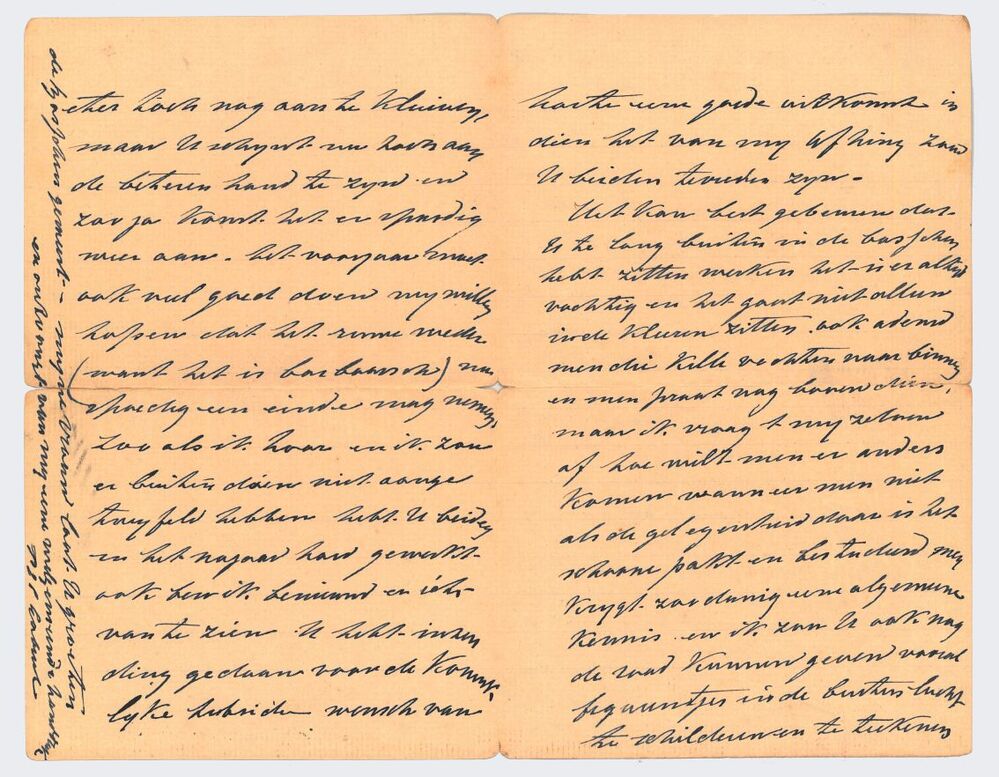 toch nog aan te
maar U schynt nu toch aan
de betere hand te zyn en
zoo ja komt het er spoedig
weer aan. het voorjaar moet
ook veel goed doen wy willen
hopen dat het ruwe weder
(want het is barbaarsch) nu
spoedig een einde mag nemen,
Zoo als ik hoor en ik zou
er buiten dien niet aan ge
twyfeld hebben hebt U beiden
in het najaar hard gewerkt
ook ben ik benieuwd er iets
van te zien U hebt inzen
ding gedaan voor de Konink-
lyke wensch van
harte eene goede uitkomst in
dien het van my afhing zoud
U beiden tevreden zyn -
Het kan best gebeuren dat
U te lang buiten in de bosschen
hebt zitten werken het is er altyd
vochtig en het gaat niet alleen
in de kleeren zitten ook ademd
men die kille vochten naar binnen
en men praat nog boven dien,
maar ik vraag 't my zelven
af hoe wilt men er anders
komen wanneer men niet
als de gelegenheid daar is het
schoone pakt en bestudeerd men
krygt zoodanig eene algemeene
kennis en ik zou U ook nog
de raad kunnen geven vooral
figuurtjes in de buitenlucht
te schilderen en te teekenen
de bosschen gemeut - myne vrouw laat U groeten
en ook ontvangt van my een welgemeende